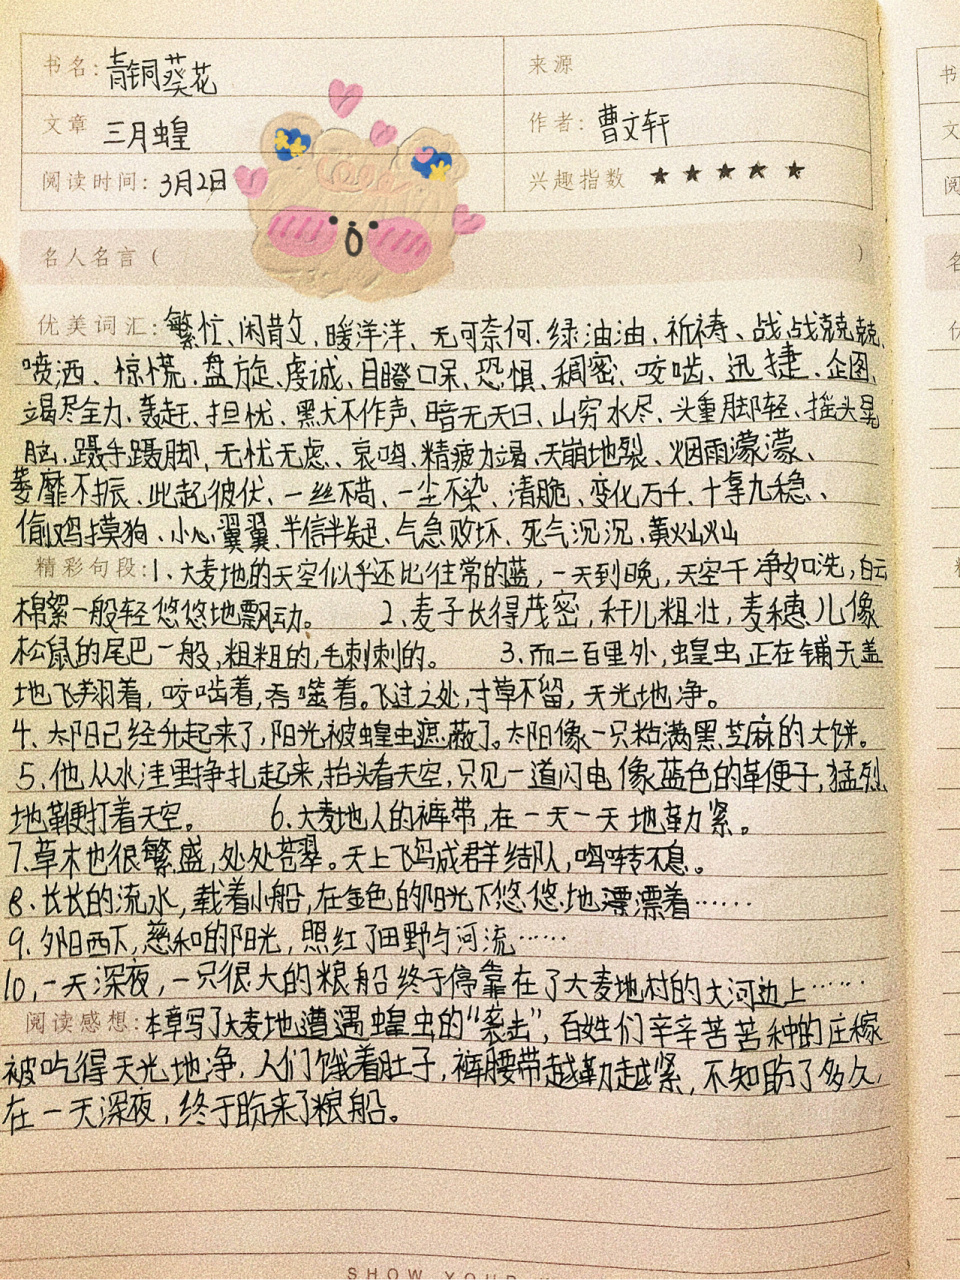 书名：青铜葵花
来源
文章 三月蝗
作者：曹文轩
阅读时间：3月2日
兴趣指数 ★★★★★
名人名言（ ）
优美词汇：繁忙、闲散、暖洋洋、无可奈何、绿油油、祈祷、战战兢兢、
喷洒、惊慌、盘旋、虔诚、目瞪口呆、恐惧、稠密、咬啮、迅捷、企图、
竭尽全力、轰赶、担忧、黑大不作声、暗无天日、山穷水尽、头重脚轻、摇头晃
脑、蹑手蹑脚、无忧无虑、哀鸣、精疲力竭、天崩地裂、烟雨濛濛、
萎靡不振、此起彼伏、一丝不苟、一尘不染、清脆、变化万千、十拿九稳、
偷鸡摸狗、小心翼翼、半信半疑、气急败坏、死气沉沉、黄灿灿
精彩句段：1、大麦地的天空似乎还比往常的蓝，一天到晚，天空干净如洗，白云
棉絮一般轻悠悠地飘动。 2、麦子长得茂密，秆儿粗壮，麦穗儿像
松鼠的尾巴一般，粗粗的，毛刺刺的。 3、而二百里外，蝗虫正在铺天盖
地飞翔着，咬啮着，吞噬着。飞过之处，寸草不留，天光地净。
4、太阳已经升起来了，阳光被蝗虫遮蔽了。太阳像一只粘满黑芝麻的大饼。
5、他从水洼里挣扎起来，抬头看天空，只见一道闪电像蓝色的革便子，猛烈
地鞭打着天空。 6、大麦地人的裤带，在一天一天地勒紧。
7、草木也很繁盛，处处苍翠。天上飞鸟成群结队，鸣啭不息。
8、长长的流水，载着小船，在金色的阳光下悠悠地漂漂着……
9、夕阳西下，慈和的阳光，照红了田野与河流……
10、一天深夜，一只很大的粮船终于停靠在了大麦地村的大河边上……
阅读感想：本章写了大麦地遭遇蝗虫的“袭击”，百姓们辛辛苦苦种的庄稼
被吃得天光地净，人们饿着肚子，裤腰带越勒越紧，不知盼了多久，
在一天深夜，终于盼来了粮船。
SHOW YOUR